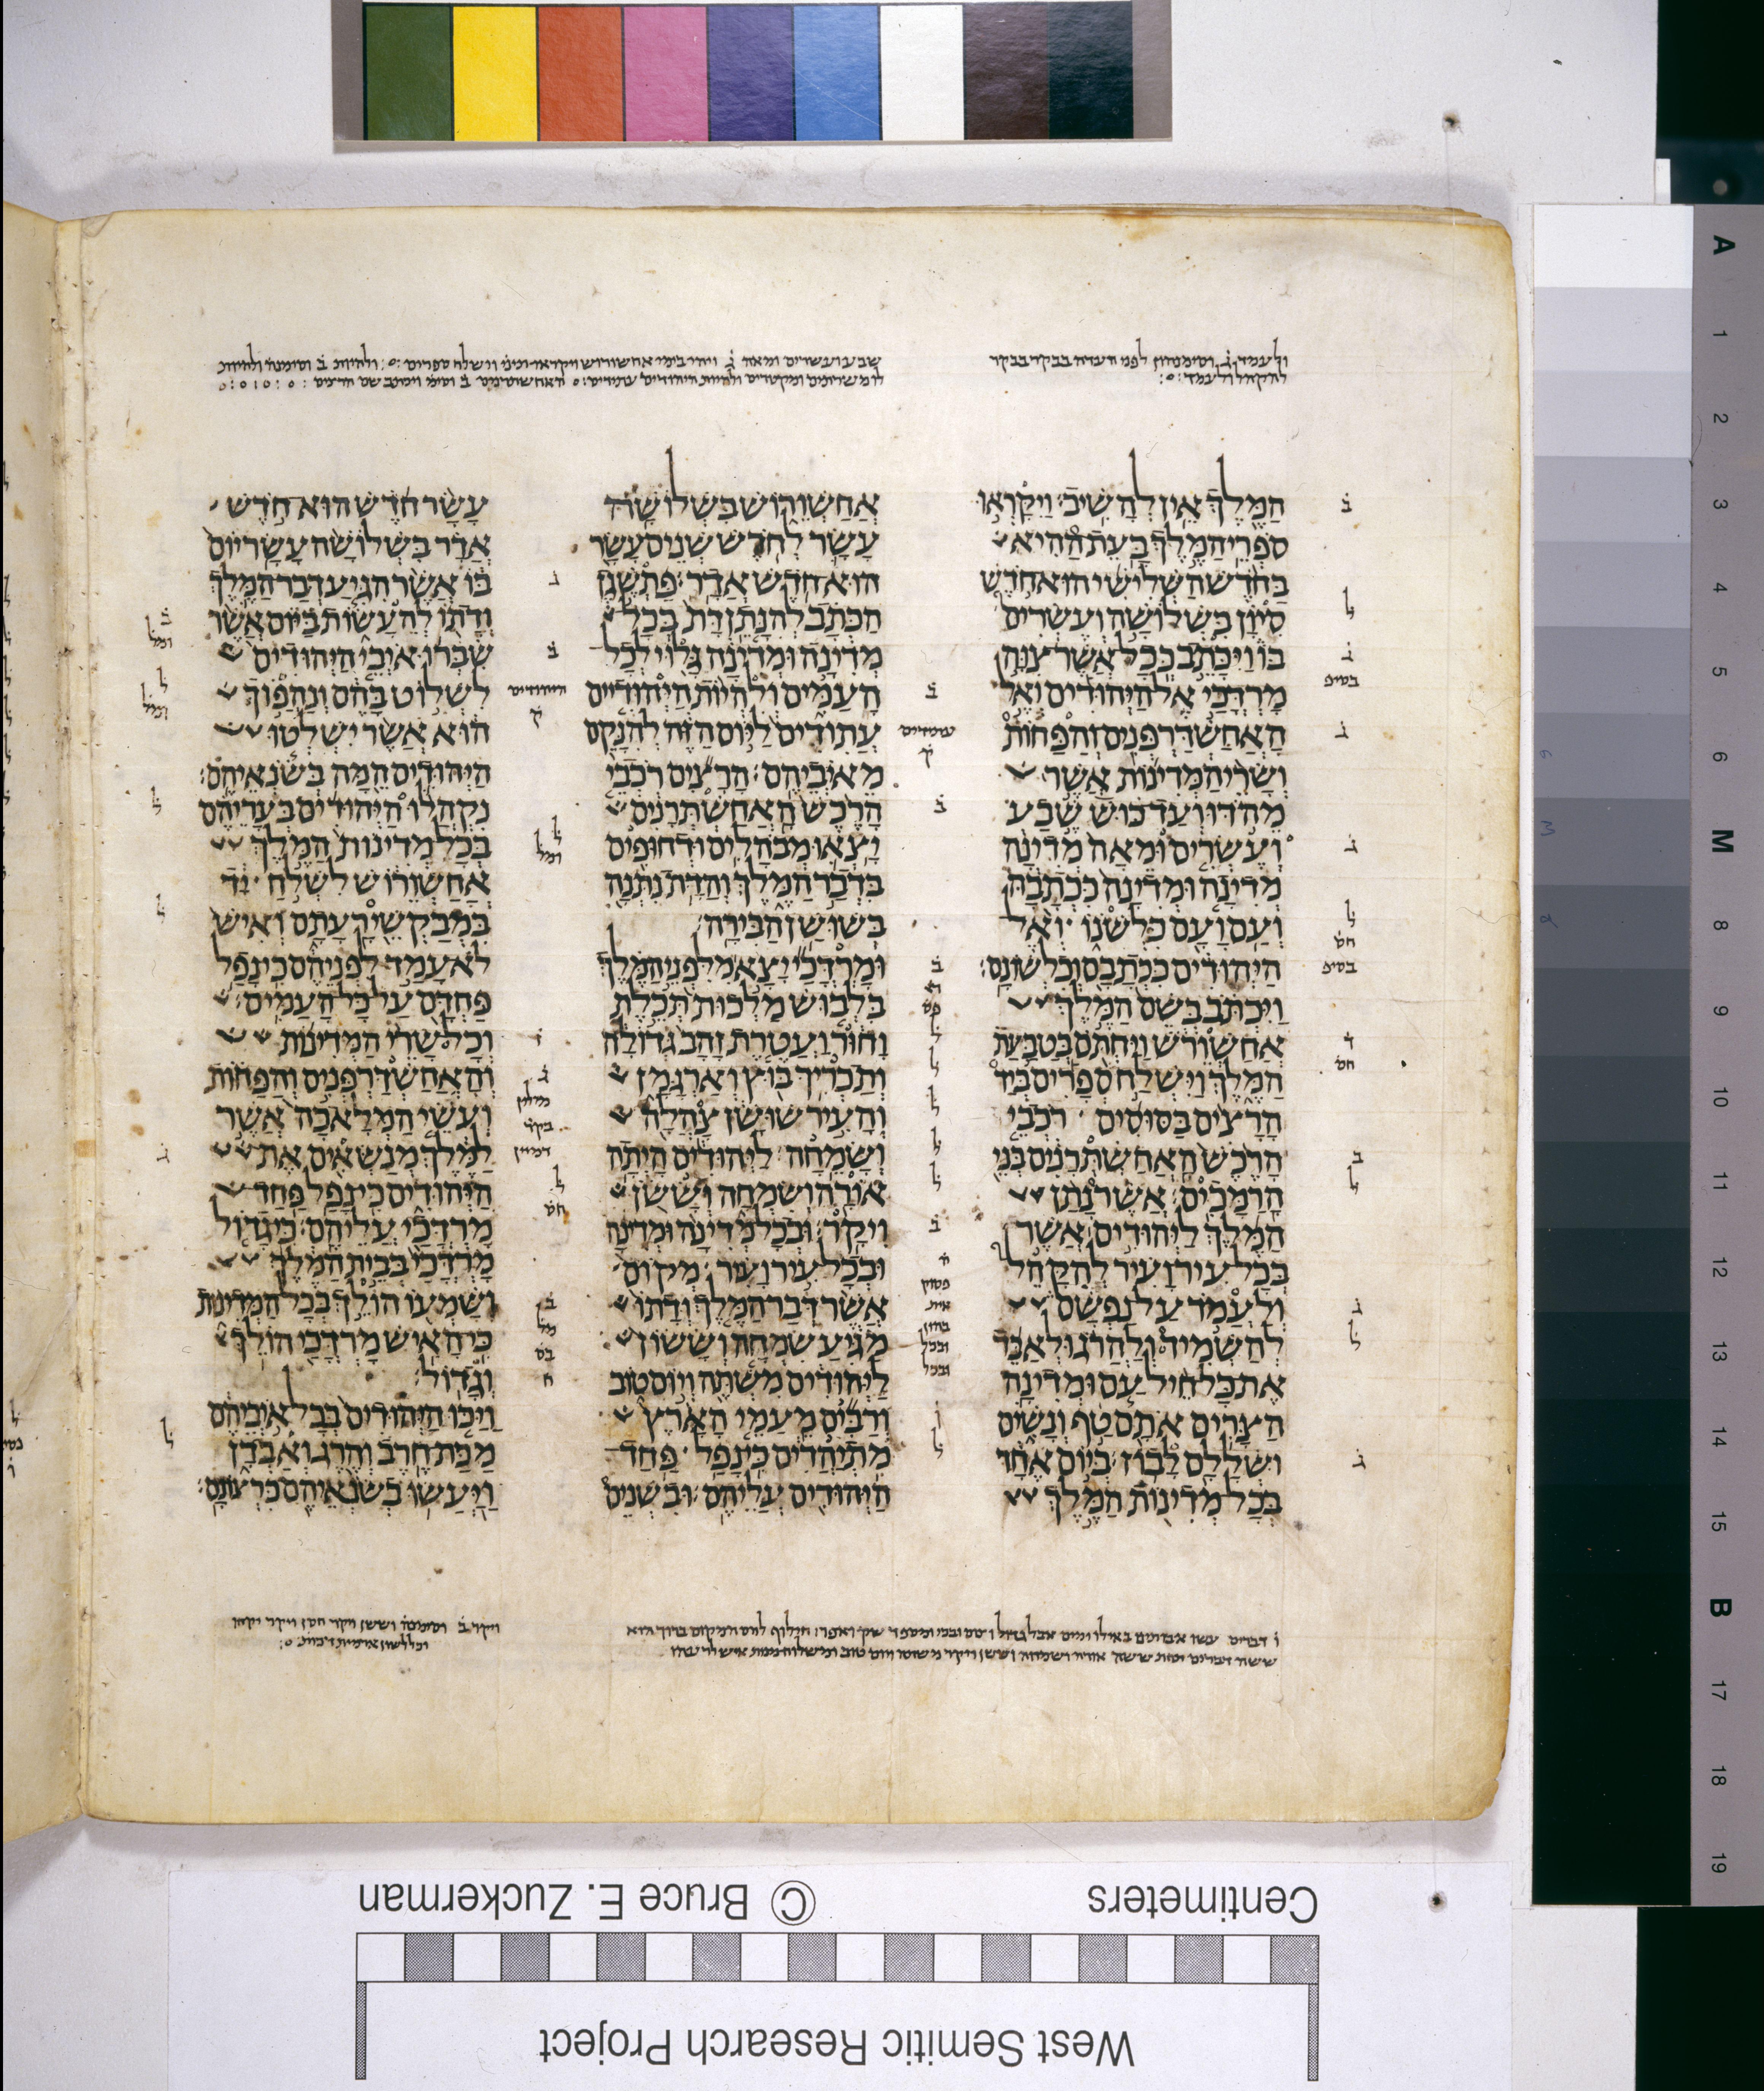 ולעמד ג וסימנהון לפני העדה בבקר בבקר
להקהל ולעמד
הַמֶּלֶךְ אֵין לְהָשִׁיב׃ וַיִּקָּרְאוּ
סֹפְרֵי הַמֶּלֶךְ בָּעֵת הַהִיא
בַּחֹדֶשׁ הַשְּׁלִישִׁי הוּא חֹדֶשׁ
סִיוָן בִּשְׁלוֹשָׁה וְעֶשְׂרִים
בּוֹ וַיִּכָּתֵב כְּכָל אֲשֶׁר צִוָּה
מָרְדֳּכַי אֶל הַיְּהוּדִים וְאֶל
הָאֲחַשְׁדַּרְפְּנִים וְהַפַּחוֹת
וְשָׂרֵי הַמְּדִינוֹת אֲשֶׁר
מֵהֹדּוּ וְעַד כּוּשׁ שֶׁבַע
וְעֶשְׂרִים וּמֵאָה מְדִינָה
מְדִינָה וּמְדִינָה כִּכְתָבָהּ
וְעַם וָעָם כִּלְשֹׁנוֹ וְאֶל
הַיְּהוּדִים כִּכְתָבָם וְכִלְשׁוֹנָם׃
וַיִּכְתֹּב בְּשֵׁם הַמֶּלֶךְ
אֲחַשְׁוֵרֹשׁ וַיַּחְתֹּם בְּטַבַּעַת
הַמֶּלֶךְ וַיִּשְׁלַח סְפָרִים בְּיַד
הָרָצִים בַּסּוּסִים רֹכְבֵי
הָרֶכֶשׁ הָאֲחַשְׁתְּרָנִים בְּנֵי
הָרַמָּכִים׃ אֲשֶׁר נָתַן
הַמֶּלֶךְ לַיְּהוּדִים אֲשֶׁר
בְּכָל עִיר וָעִיר לְהִקָּהֵל
וְלַעֲמֹד עַל נַפְשָׁם
לְהַשְׁמִיד וְלַהֲרֹג וּלְאַבֵּד
אֶת כָּל חֵיל עַם וּמְדִינָה
הַצָּרִים אֹתָם טַף וְנָשִׁים
וּשְׁלָלָם לָבוֹז׃ בְּיוֹם אֶחָד
בְּכָל מְדִינוֹת הַמֶּלֶךְ
שבע ועשרים ומאה ג ויהי בימי אחשורוש ויקראו וישלח ספרים ולהיות ב וסימנה ולהיות
אֲחַשְׁוֵרוֹשׁ בִּשְׁלוֹשָׁה
עָשָׂר לְחֹדֶשׁ שְׁנֵים עָשָׂר
הוּא חֹדֶשׁ אֲדָר׃ פַּתְשֶׁגֶן
הַכְּתָב לְהִנָּתֵן דָּת בְּכָל
מְדִינָה וּמְדִינָה גָּלוּי לְכָל
הָעַמִּים וְלִהְיוֹת הַיְּהוּדִיים
עֲתִודִים לַיּוֹם הַזֶּה לְהִנָּקֵם
מֵאֹיְבֵיהֶם׃ הָרָצִים רֹכְבֵי
הָרֶכֶשׁ הָאֲחַשְׁתְּרָנִים
יָצְאוּ מְבֹהָלִים וּדְחוּפִים
בִּדְבַר הַמֶּלֶךְ וְהַדָּת נִתְּנָה
בְּשׁוּשַׁן הַבִּירָה׃
וּמָרְדֳּכַי יָצָא מִלִּפְנֵי הַמֶּלֶךְ
בִּלְבוּשׁ מַלְכוּת תְּכֵלֶת
וָחוּר וַעֲטֶרֶת זָהָב גְּדוֹלָה
וְתַכְרִיךְ בּוּץ וְאַרְגָּמָן
וְהָעִיר שׁוּשָׁן צָהֲלָה
וְשָׂמֵחָה׃ לַיְּהוּדִים הָיְתָה
אוֹרָה וְשִׂמְחָה וְשָׂשֹׂן
וִיקָר׃ וּבְכָל מְדִינָה וּמְדִינָה
וּבְכָל עִיר וָעִיר מְקוֹם
אֲשֶׁר דְּבַר הַמֶּלֶךְ וְדָתוֹ
מַגִּיעַ שִׂמְחָה וְשָׂשׂוֹן
לַיְּהוּדִים מִשְׁתֶּה וְיוֹם טוֹב
וְרַבִּים מֵעַמֵּי הָאָרֶץ
מִתְיַהֲדִים כִּי נָפַל פַּחַד
הַיְּהוּדִים עֲלֵיהֶם׃ וּבִשְׁנֵים
עָשָׂר חֹדֶשׁ הוּא חֹדֶשׁ
אֲדָר בִּשְׁלוֹשָׁה עָשָׂר יוֹם
בּוֹ אֲשֶׁר הִגִּיעַ דְּבַר הַמֶּלֶךְ
וְדָתוֹ לְהֵעָשׂוֹת בַּיּוֹם אֲשֶׁר
שִׂבְּרוּ אֹיְבֵי הַיְּהוּדִים
לִשְׁלוֹט בָּהֶם וְנַהֲפוֹךְ
הוּא אֲשֶׁר יִשְׁלְטוּ
הַיְּהוּדִים הֵמָּה בְּשֹׂנְאֵיהֶם׃
נִקְהֲלוּ הַיְּהוּדִים בְּעָרֵיהֶם
בְּכָל מְדִינוֹת הַמֶּלֶךְ
אֲחַשְׁוֵרוֹשׁ לִשְׁלֹחַ יָד
בִּמְבַקְשֵׁי רָעָתָם וְאִישׁ
לֹא עָמַד לִפְנֵיהֶם כִּי נָפַל
פַּחְדָּם עַל כָּל הָעַמִּים׃
וְכָל שָׂרֵי הַמְּדִינוֹת
וְהָאֲחַשְׁדַּרְפְּנִים וְהַפַּחוֹת
וְעֹשֵׂי הַמְּלָאכָה אֲשֶׁר
לַמֶּלֶךְ מְנַשְּׂאִים אֶת
הַיְּהוּדִים כִּי נָפַל פַּחַד
מָרְדֳּכַי עֲלֵיהֶם׃ כִּי גָדוֹל
מָרְדֳּכַי בְּבֵית הַמֶּלֶךְ
וְשָׁמְעוֹ הוֹלֵךְ בְּכָל הַמְּדִינוֹת
כִּי הָאִישׁ מָרְדֳּכַי הוֹלֵךְ
וְגָדוֹל׃
וַיַּכּוּ הַיְּהוּדִים בְּכָל אֹיְבֵיהֶם
מַכַּת חֶרֶב וְהֶרֶג וְאַבְדָן
וַיַּעֲשׂוּ בְשֹׂנְאֵיהֶם כִּרְצוֹנָם׃
© Bruce E. Zuckerman
Centimeters
West Semitic Research Project
A 1 2 3 4 5 6 M 8 9 10 11 12 13 14 15 B 17 18 19